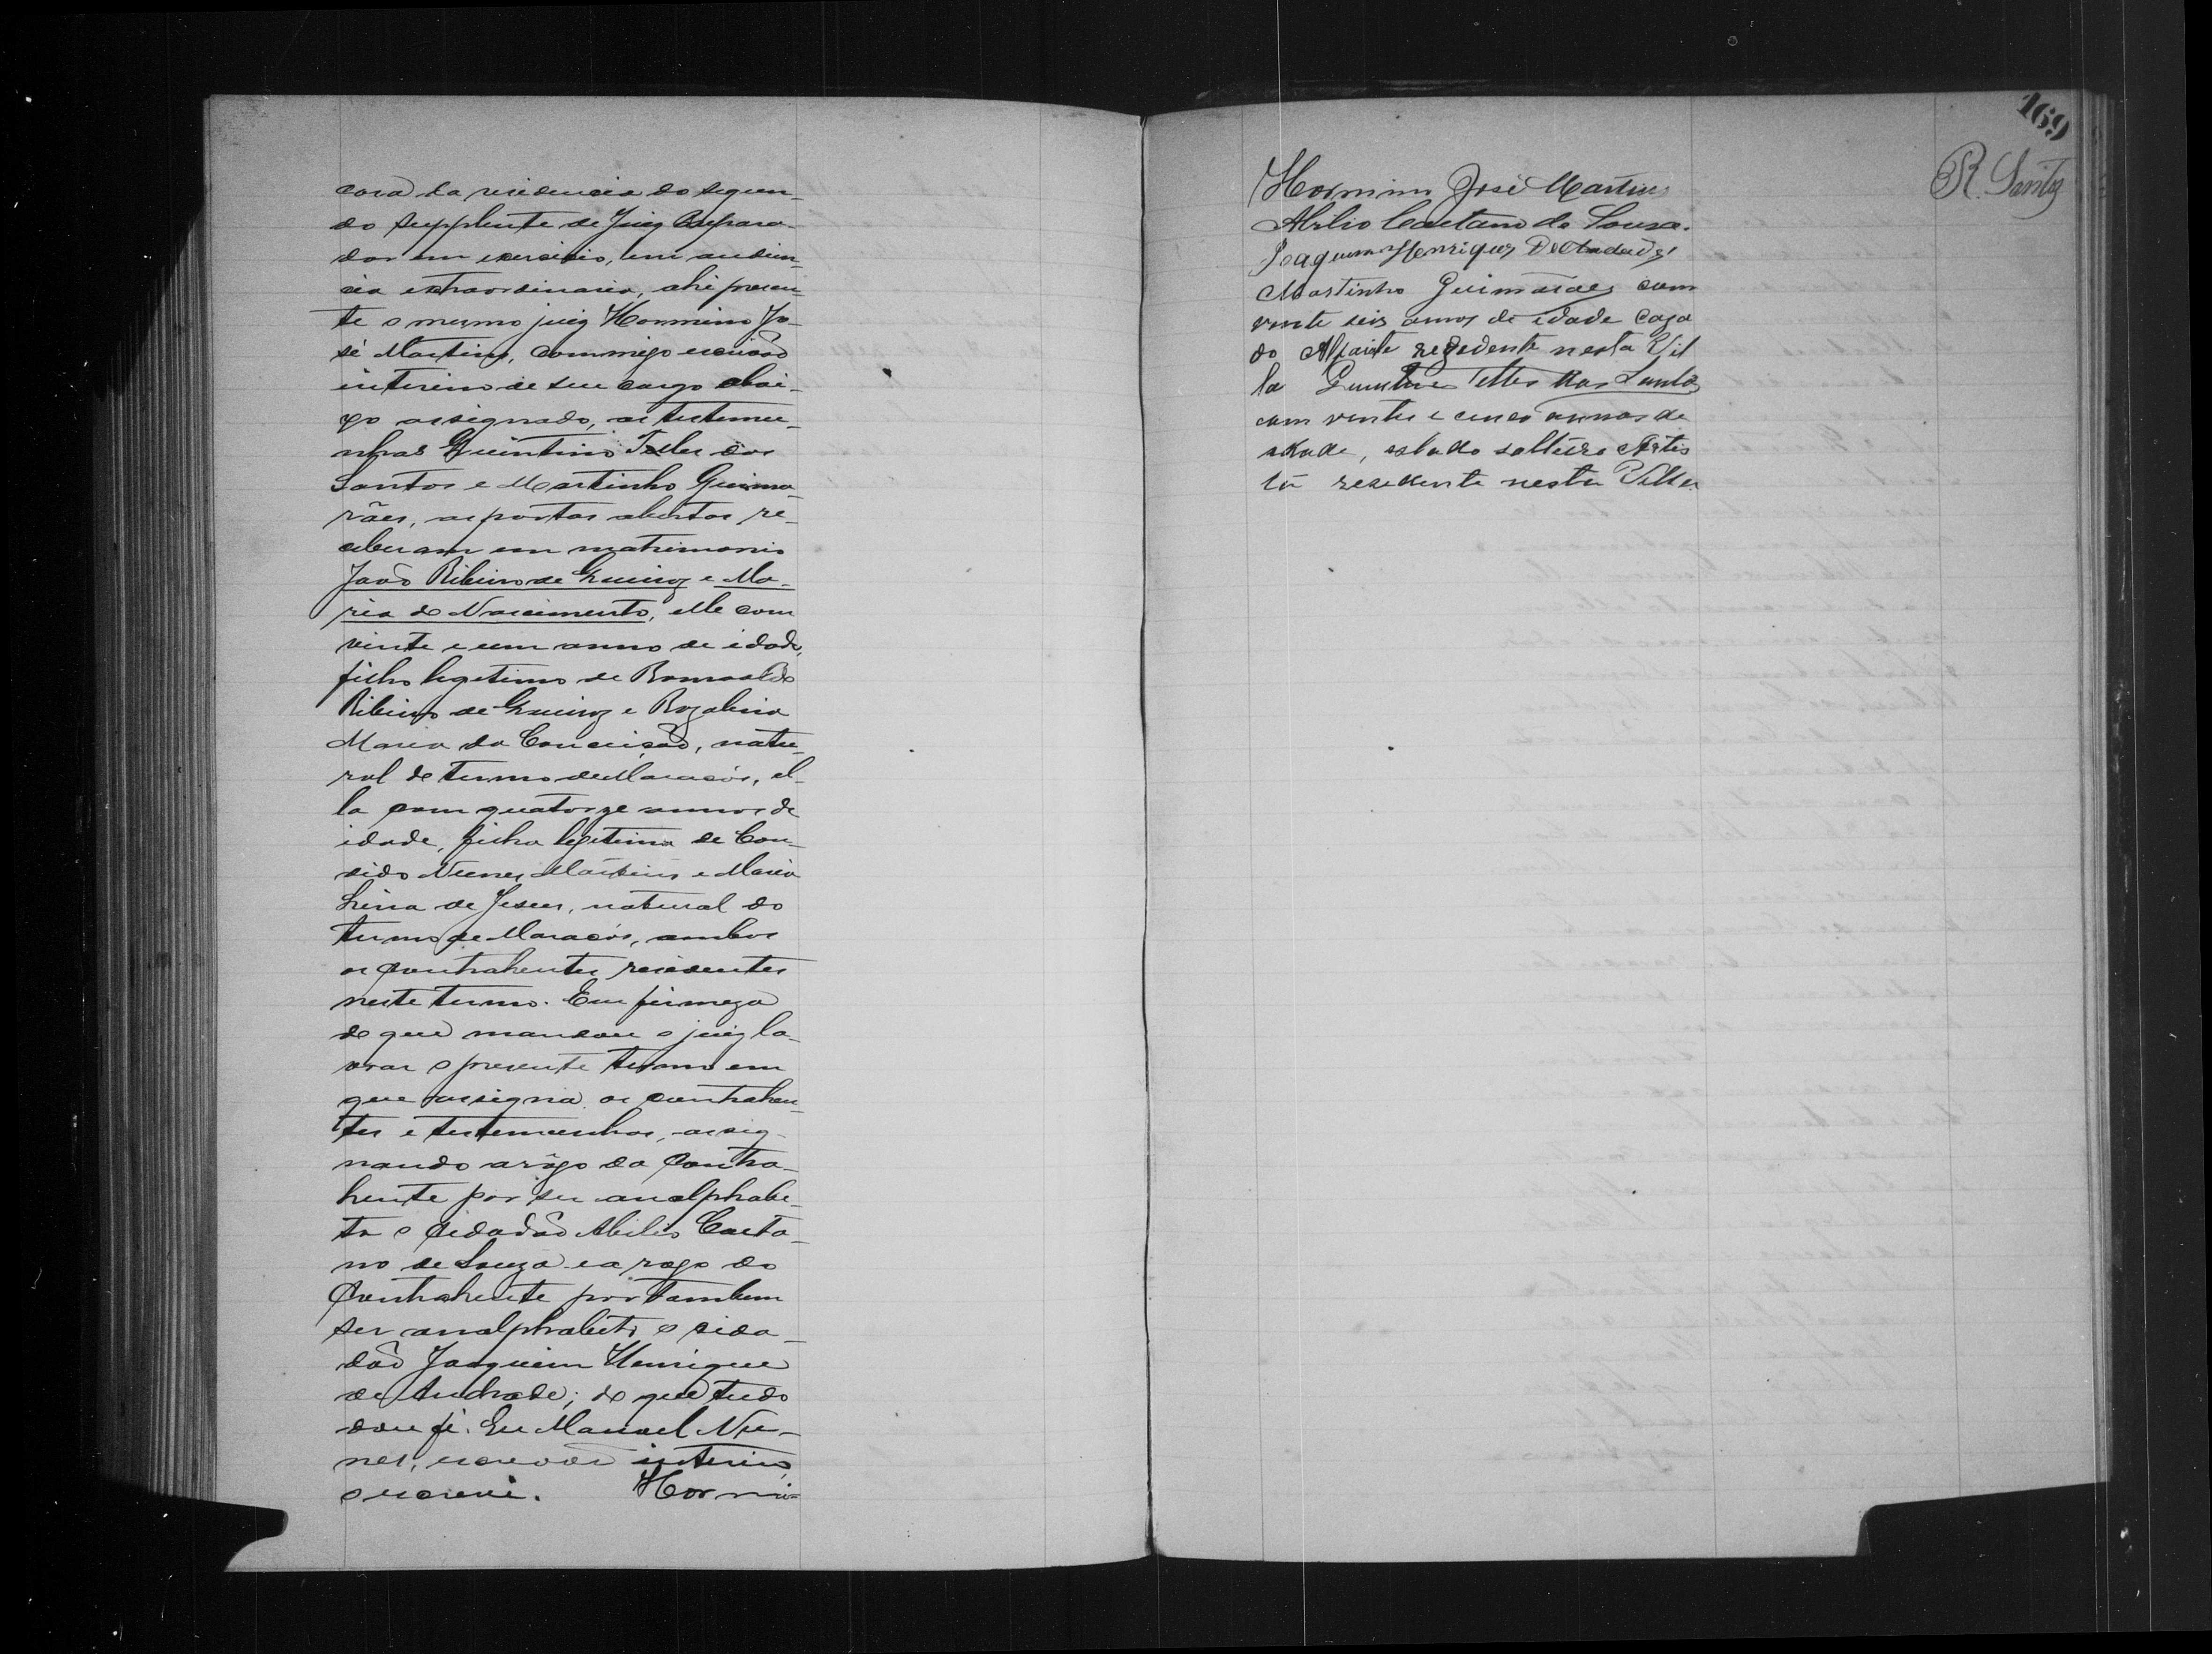 casa da residencia do segun-
do supplente de Juiz Prepara-
dor em exercicio, em audien-
cia extraordinaria, ahi presen-
te o mesmo juiz Hormino Jo-
sé Martins, commigo escrivão
interino de seu cargo abai-
xo assignado, as testemu-
nhas Quintino Telles dos
Santos e Martinho Guima-
rães, as portas abertas, re-
ceberam em matrimonio
João Ribeiro de Queiroz e Ma-
ria do Nascimento, elle com
vinte e um anno de idade,
filho legitimo de Romualdo
Ribeiro de Queiroz e Rozalina
Maria da Conceição, natu-
ral do termo de Maracás, el-
la com quatorze annos de
idade, filha legitima de Can-
dido Nunes Martins e Maria
Lina de Jesus, natural do
termo de Maracás, ambos
os contrahentes residentes
neste termo. Em firmeza
do que mandou o juiz la-
vrar o presente termo em
que assigna os contrahen-
tes e testemunhas, assig-
nando a rôgo da Contra-
hente por ser analphabe-
ta o cidadão Abilio Caeta-
no de Souza e a rogo do
Contrahente por tambem
ser analphabeto o cida-
dão Joaquim Henrique
de Andrade; do que tudo
dou fé. Eu Manoel Nu-
nes, escrivão interino,
o escrevi. Hormi-
169
R. Santos
Hormino José Martins
Abilio Caetano de Sousa.
Joaquim Henriques De Andrade
Martinho Guimarães com
vinte seis annos de idade Caza
do Alfaiate rezedente nesta Vil
la Quintino Telles dos Santos
com vinte e cinco annos de
idade, estado solteiro Artis
ta resedente nesta Villa